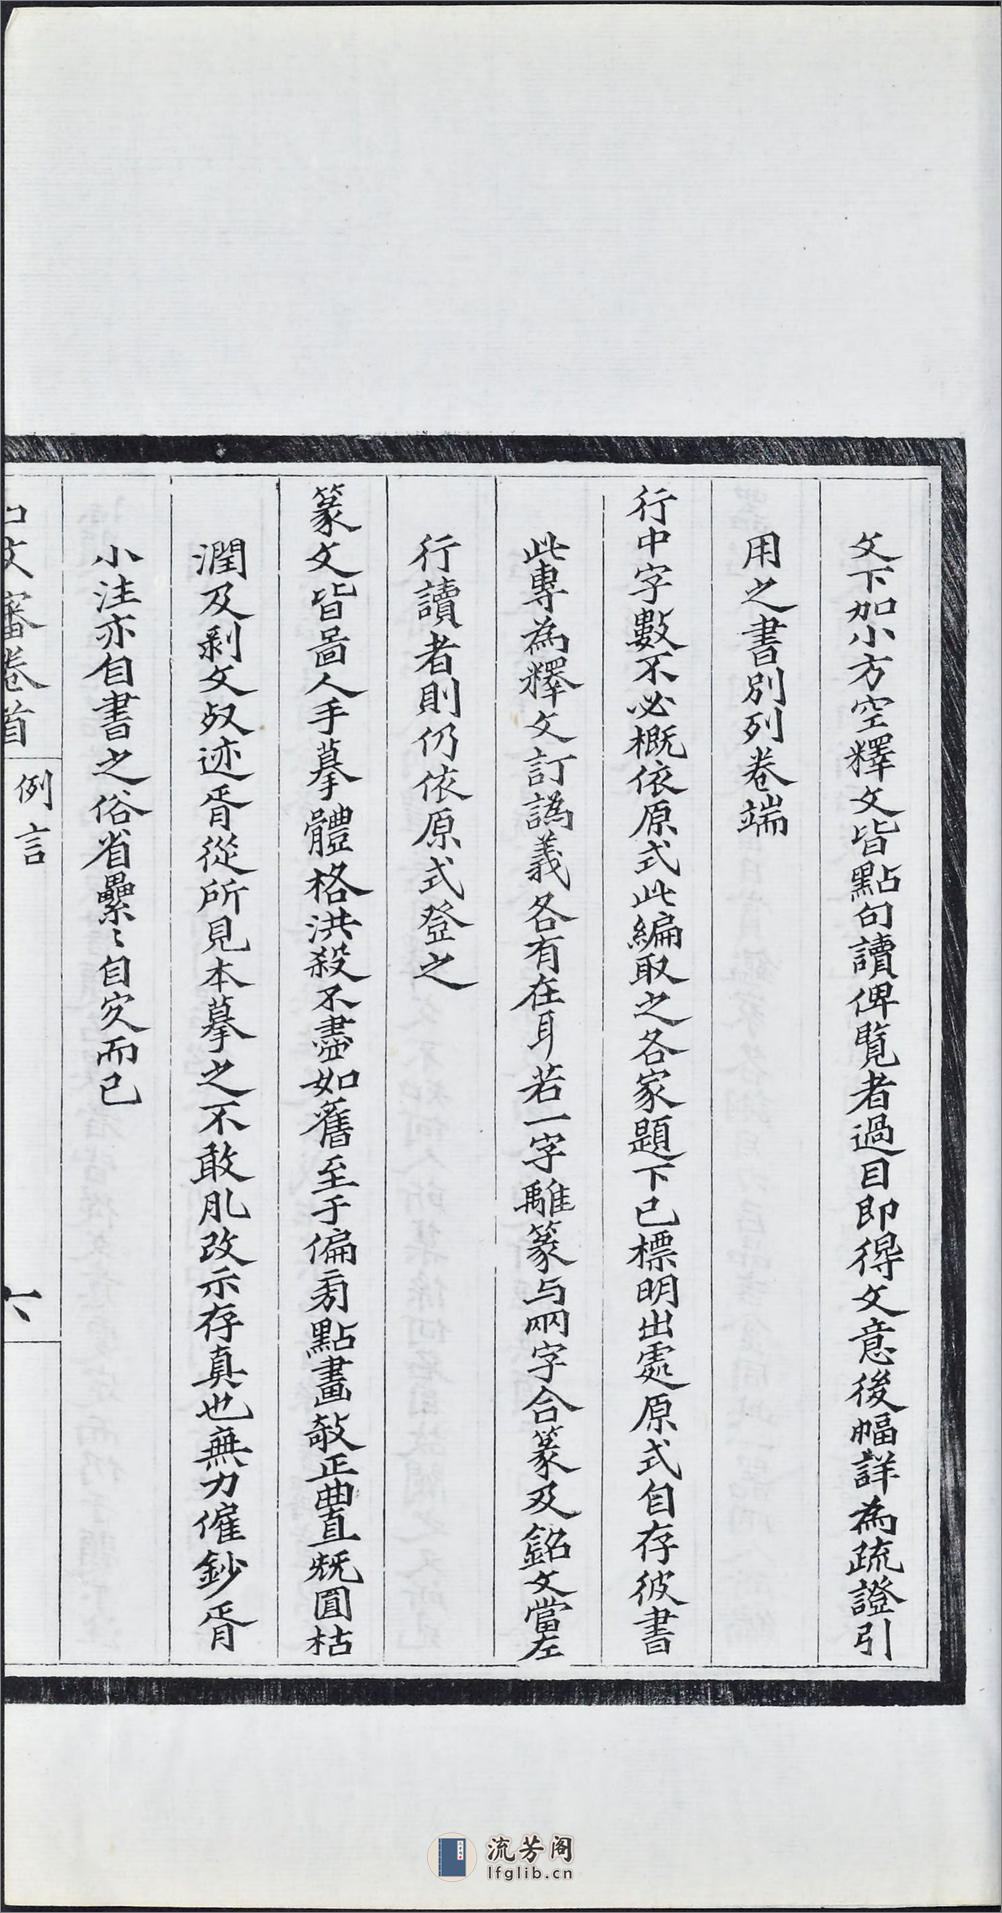 文下加小方空釋文皆點句讀俾覽者過目即得文意後幅詳為疏證引
用之書別列卷端
行中字數不必概依原式此編取之各家題下已標明出處原式自存彼書
此專為釋文訂譌義各有在耳若一字離篆与兩字合篆及銘文當左
行讀者則仍依原式登之
篆文皆啚人手摹體格洪殺不盡如舊至于偏旁點畫敧正曲直觚圓枯
潤及剥文奴迹胥從所見本摹之不敢肊改示存真也無力僱鈔胥
小注亦自書之俗省纍〻自宊而已
文審卷首
例言
六
流芳阁
lfglib.cn